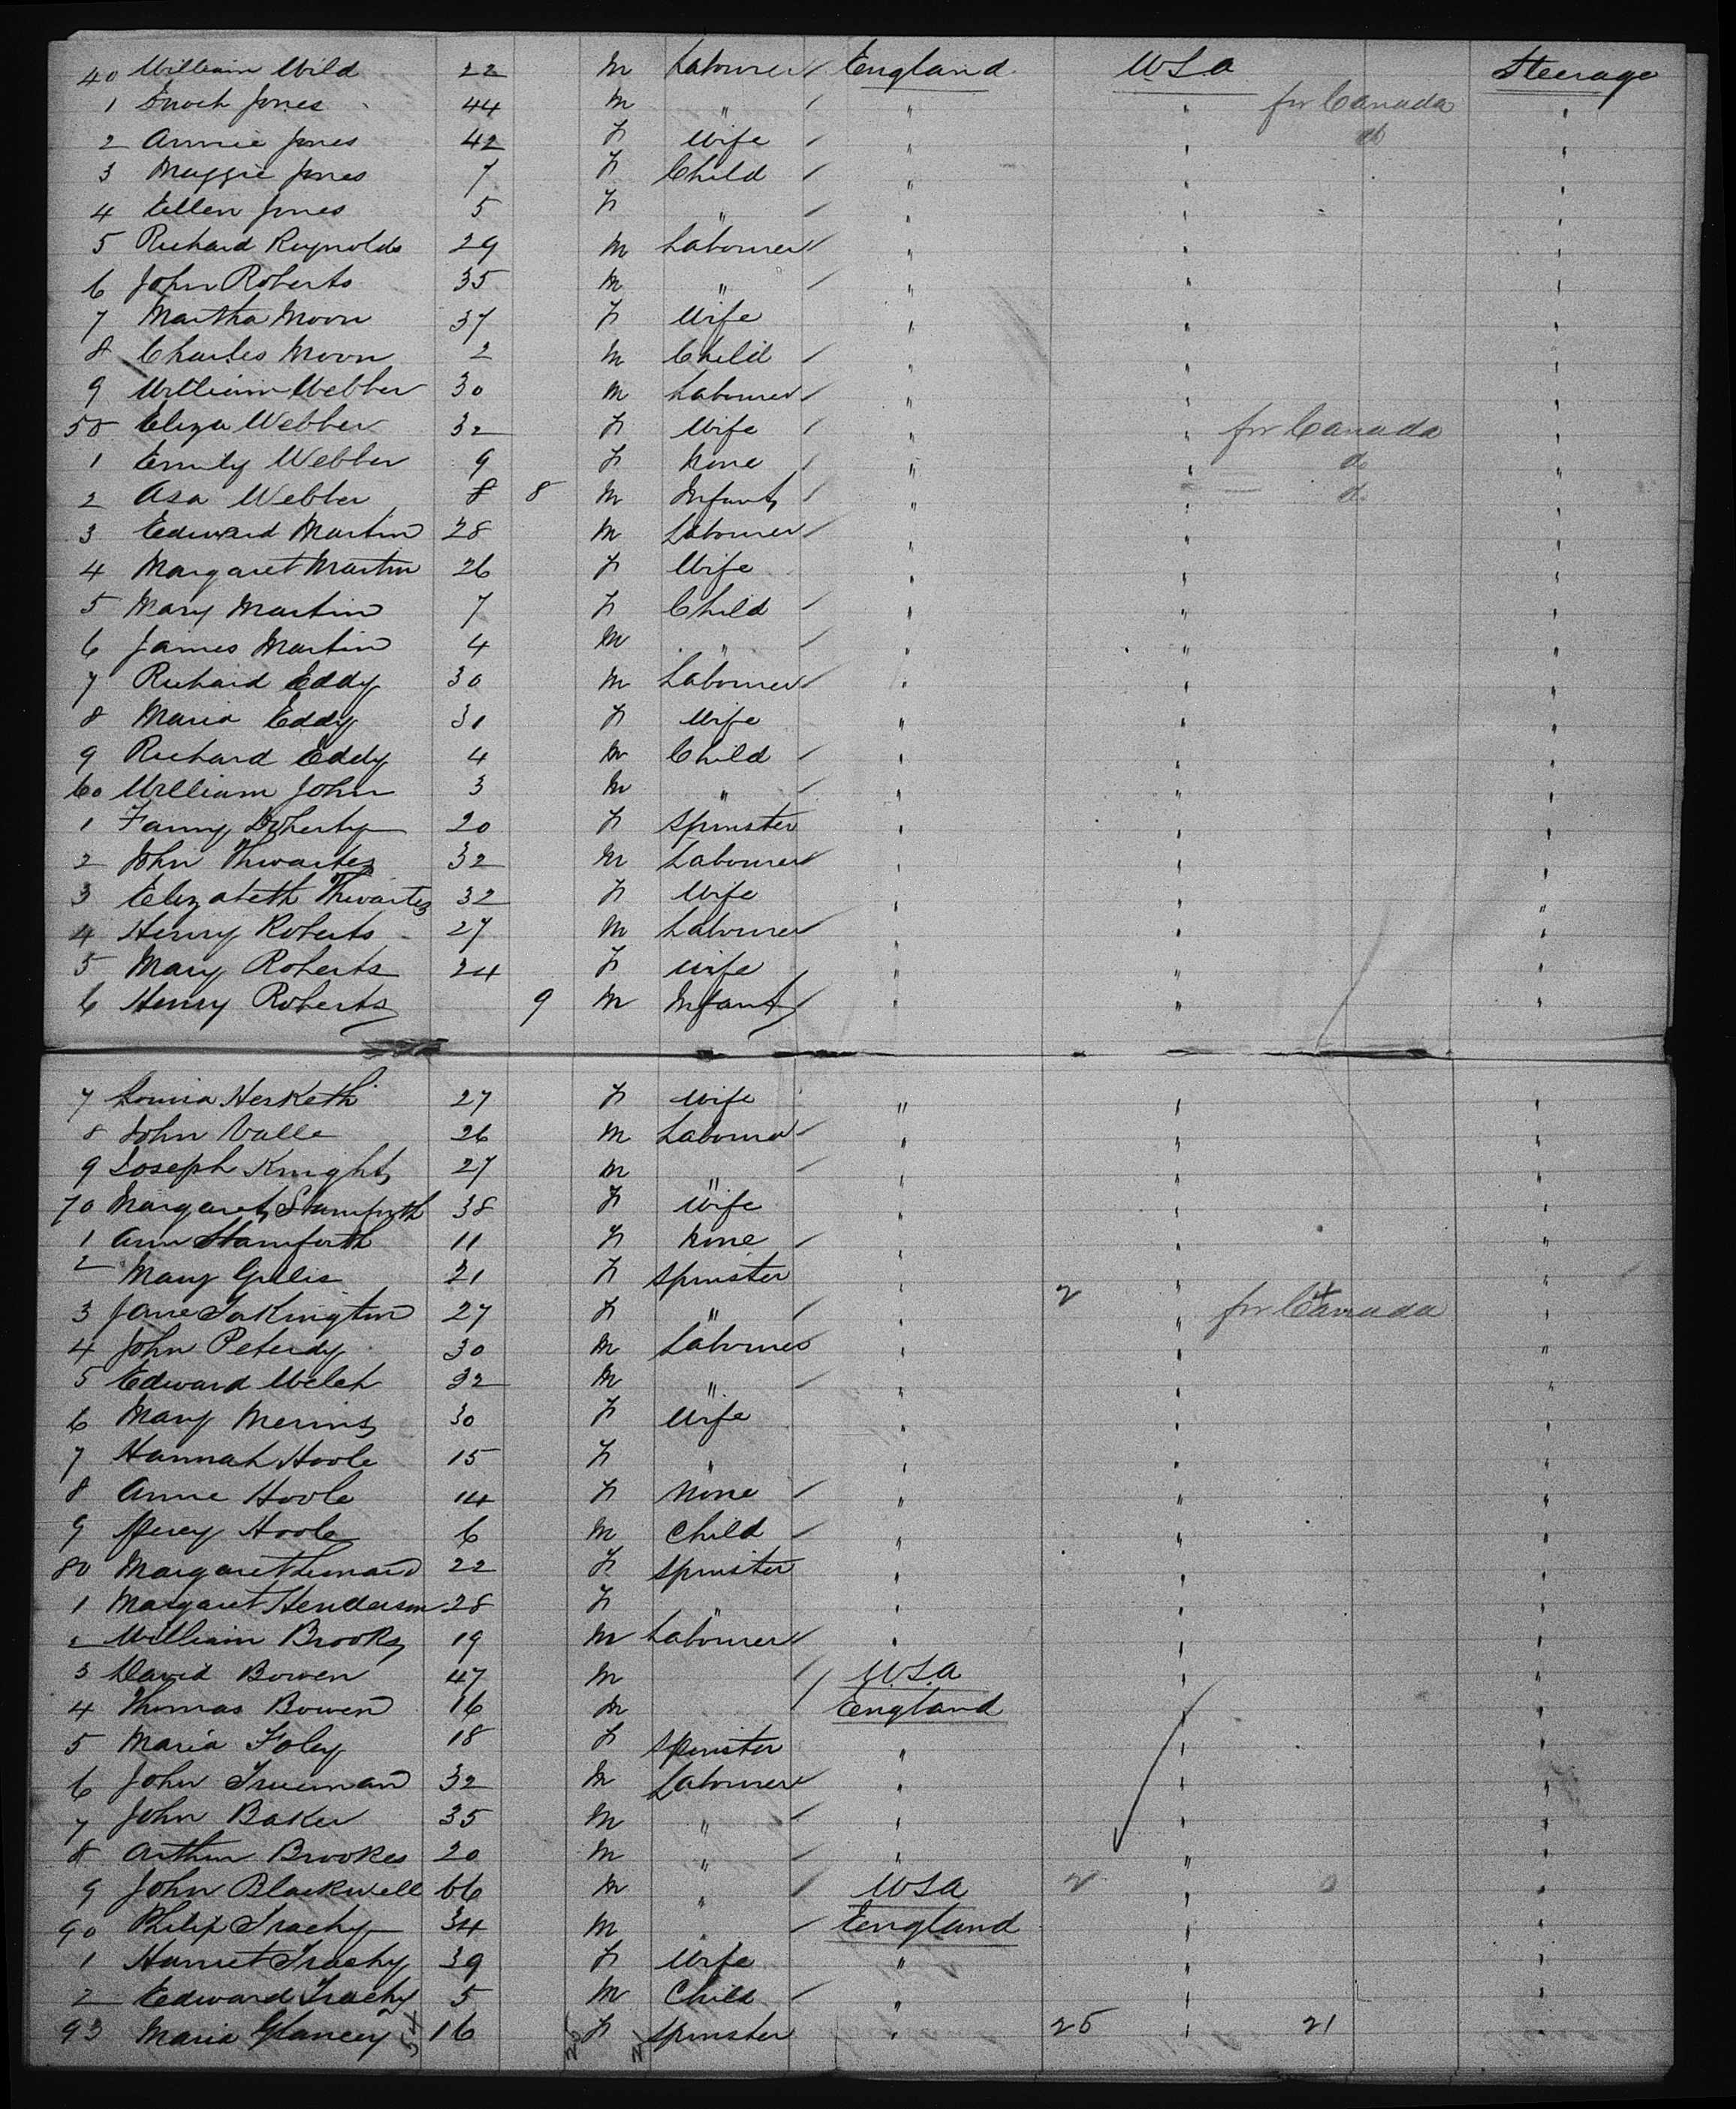 40 William Wild 22 M Labourer / England USA Steerage
1 Enoch Jones 44 M " / " " for Canada "
2 Annie Jones 42 F Wife / " " do "
3 Maggie Jones 7 F Child / " " "
4 Ellen Jones 5 F " / " " "
5 Richard Reynolds 29 M Labourer / " " "
6 John Roberts 35 M " / " " "
7 Martha Moon 37 F Wife " " "
8 Charles Moon 2 M Child / " " "
9 William Webber 30 M Labourer / " " "
50 Eliza Webber 32 F Wife / " " for Canada "
1 Emily Webber 9 F None / " " do "
2 Asa Webber 8 8 M Infant / " " do "
3 Edward Martin 28 M Labourer / " " "
4 Margaret Martin 26 F Wife " " "
5 Mary Martin 7 F Child / " " "
6 James Martin 4 M " / " " "
7 Richard Eddy 30 M Labourer / " " "
8 Maria Eddy 31 F Wife " " "
9 Richard Eddy 4 M Child / " " "
60 William John 3 M " / " " "
1 Fanny Doherty 20 F Spinster " " "
2 John Thwaites 32 M Labourer / " " "
3 Elizabeth Thwaites 32 F Wife " " "
4 Henry Roberts 27 M Labourer / " " "
5 Mary Roberts 24 F Wife " " "
6 Henry Roberts 9 M Infant / " " "
7 Louisa Hesketh 27 F Wife " " "
8 John Valle 26 M Labourer / " " "
9 Joseph Knight 27 M " / " " "
70 Margaret Stamforth 38 F Wife " " "
1 Ann Stamforth 11 F None / " " "
2 Mary Gillis 21 F Spinster " 2 " "
3 Jane Tarkington 27 F " / " " for Canada "
4 John Peterdy 30 M Labourer " " "
5 Edward Welch 32 M " / " " "
6 Mary 30 F Wife " " "
7 Hannah Hoole 15 F " " " "
8 Annie Hoole 14 F None / " " "
9 Percy Hoole 6 M Child / " " "
80 Margaret Lennard 22 F Spinster " " "
1 Margaret Henderson 28 F " " " "
2 William Brooks 19 M Labourer / " " "
3 David Bowen 47 M / U.S.A " "
4 Thomas Bowen 16 M / England " "
5 Maria Foley 18 F Spinster " " "
6 John Trueman 32 M Labourer / " " "
7 John Baker 35 M " / " " "
8 Arthur Brookes 20 M " / " " "
9 John Blackwell 66 M " / USA 2 " 0 "
90 Philip Trachy 34 M " / England " "
1 Harriet Trachy 39 F Wife " " "
2 Edward Trachy 5 M Child / " " "
93 Maria Glancey 16 F Spinster " 25 " 21 "